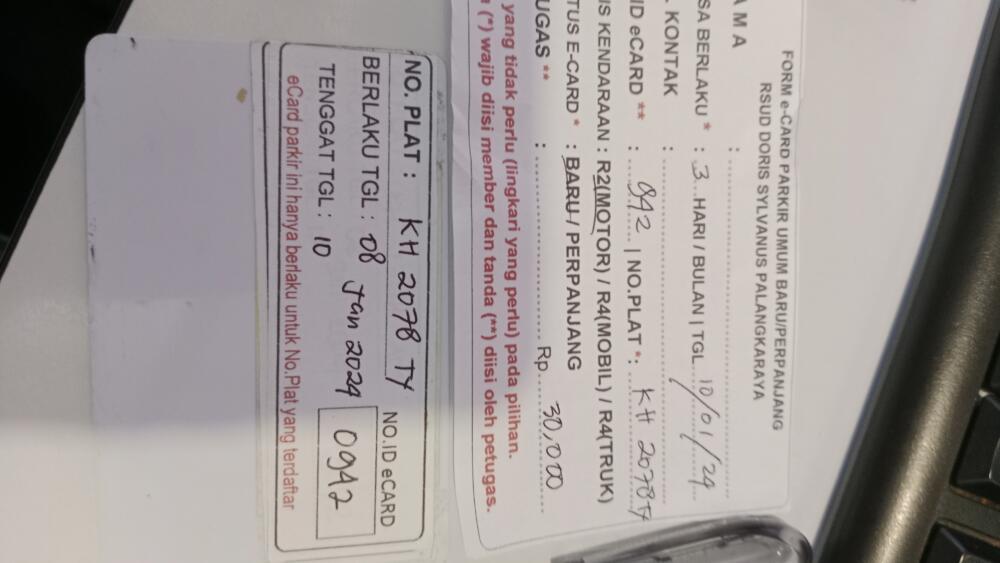 FORM e-CARD PARKIR UMUM BARU/PERPANJANG
RSUD DORIS SYLVANUS PALANGKARAYA
AMA :
SA BERLAKU * : 3 HARI / BULAN | TGL 10/01/24
. KONTAK :
ID eCARD ** : 942 | NO.PLAT *: KH 2078 TY
IS KENDARAAN : R2(MOTOR) / R4(MOBIL) / R4(TRUK)
TUS E-CARD * : BARU / PERPANJANG
UGAS ** : Rp 30,000
yang tidak perlu (lingkari yang perlu) pada pilihan.
(*) wajib diisi member dan tanda (**) diisi oleh petugas.
NO. PLAT : KH 2078 TY
BERLAKU TGL : 08 Jan 2024
TENGGAT TGL : 10
NO.ID eCARD
0942
eCard parkir ini hanya berlaku untuk No.Plat yang terdaftar